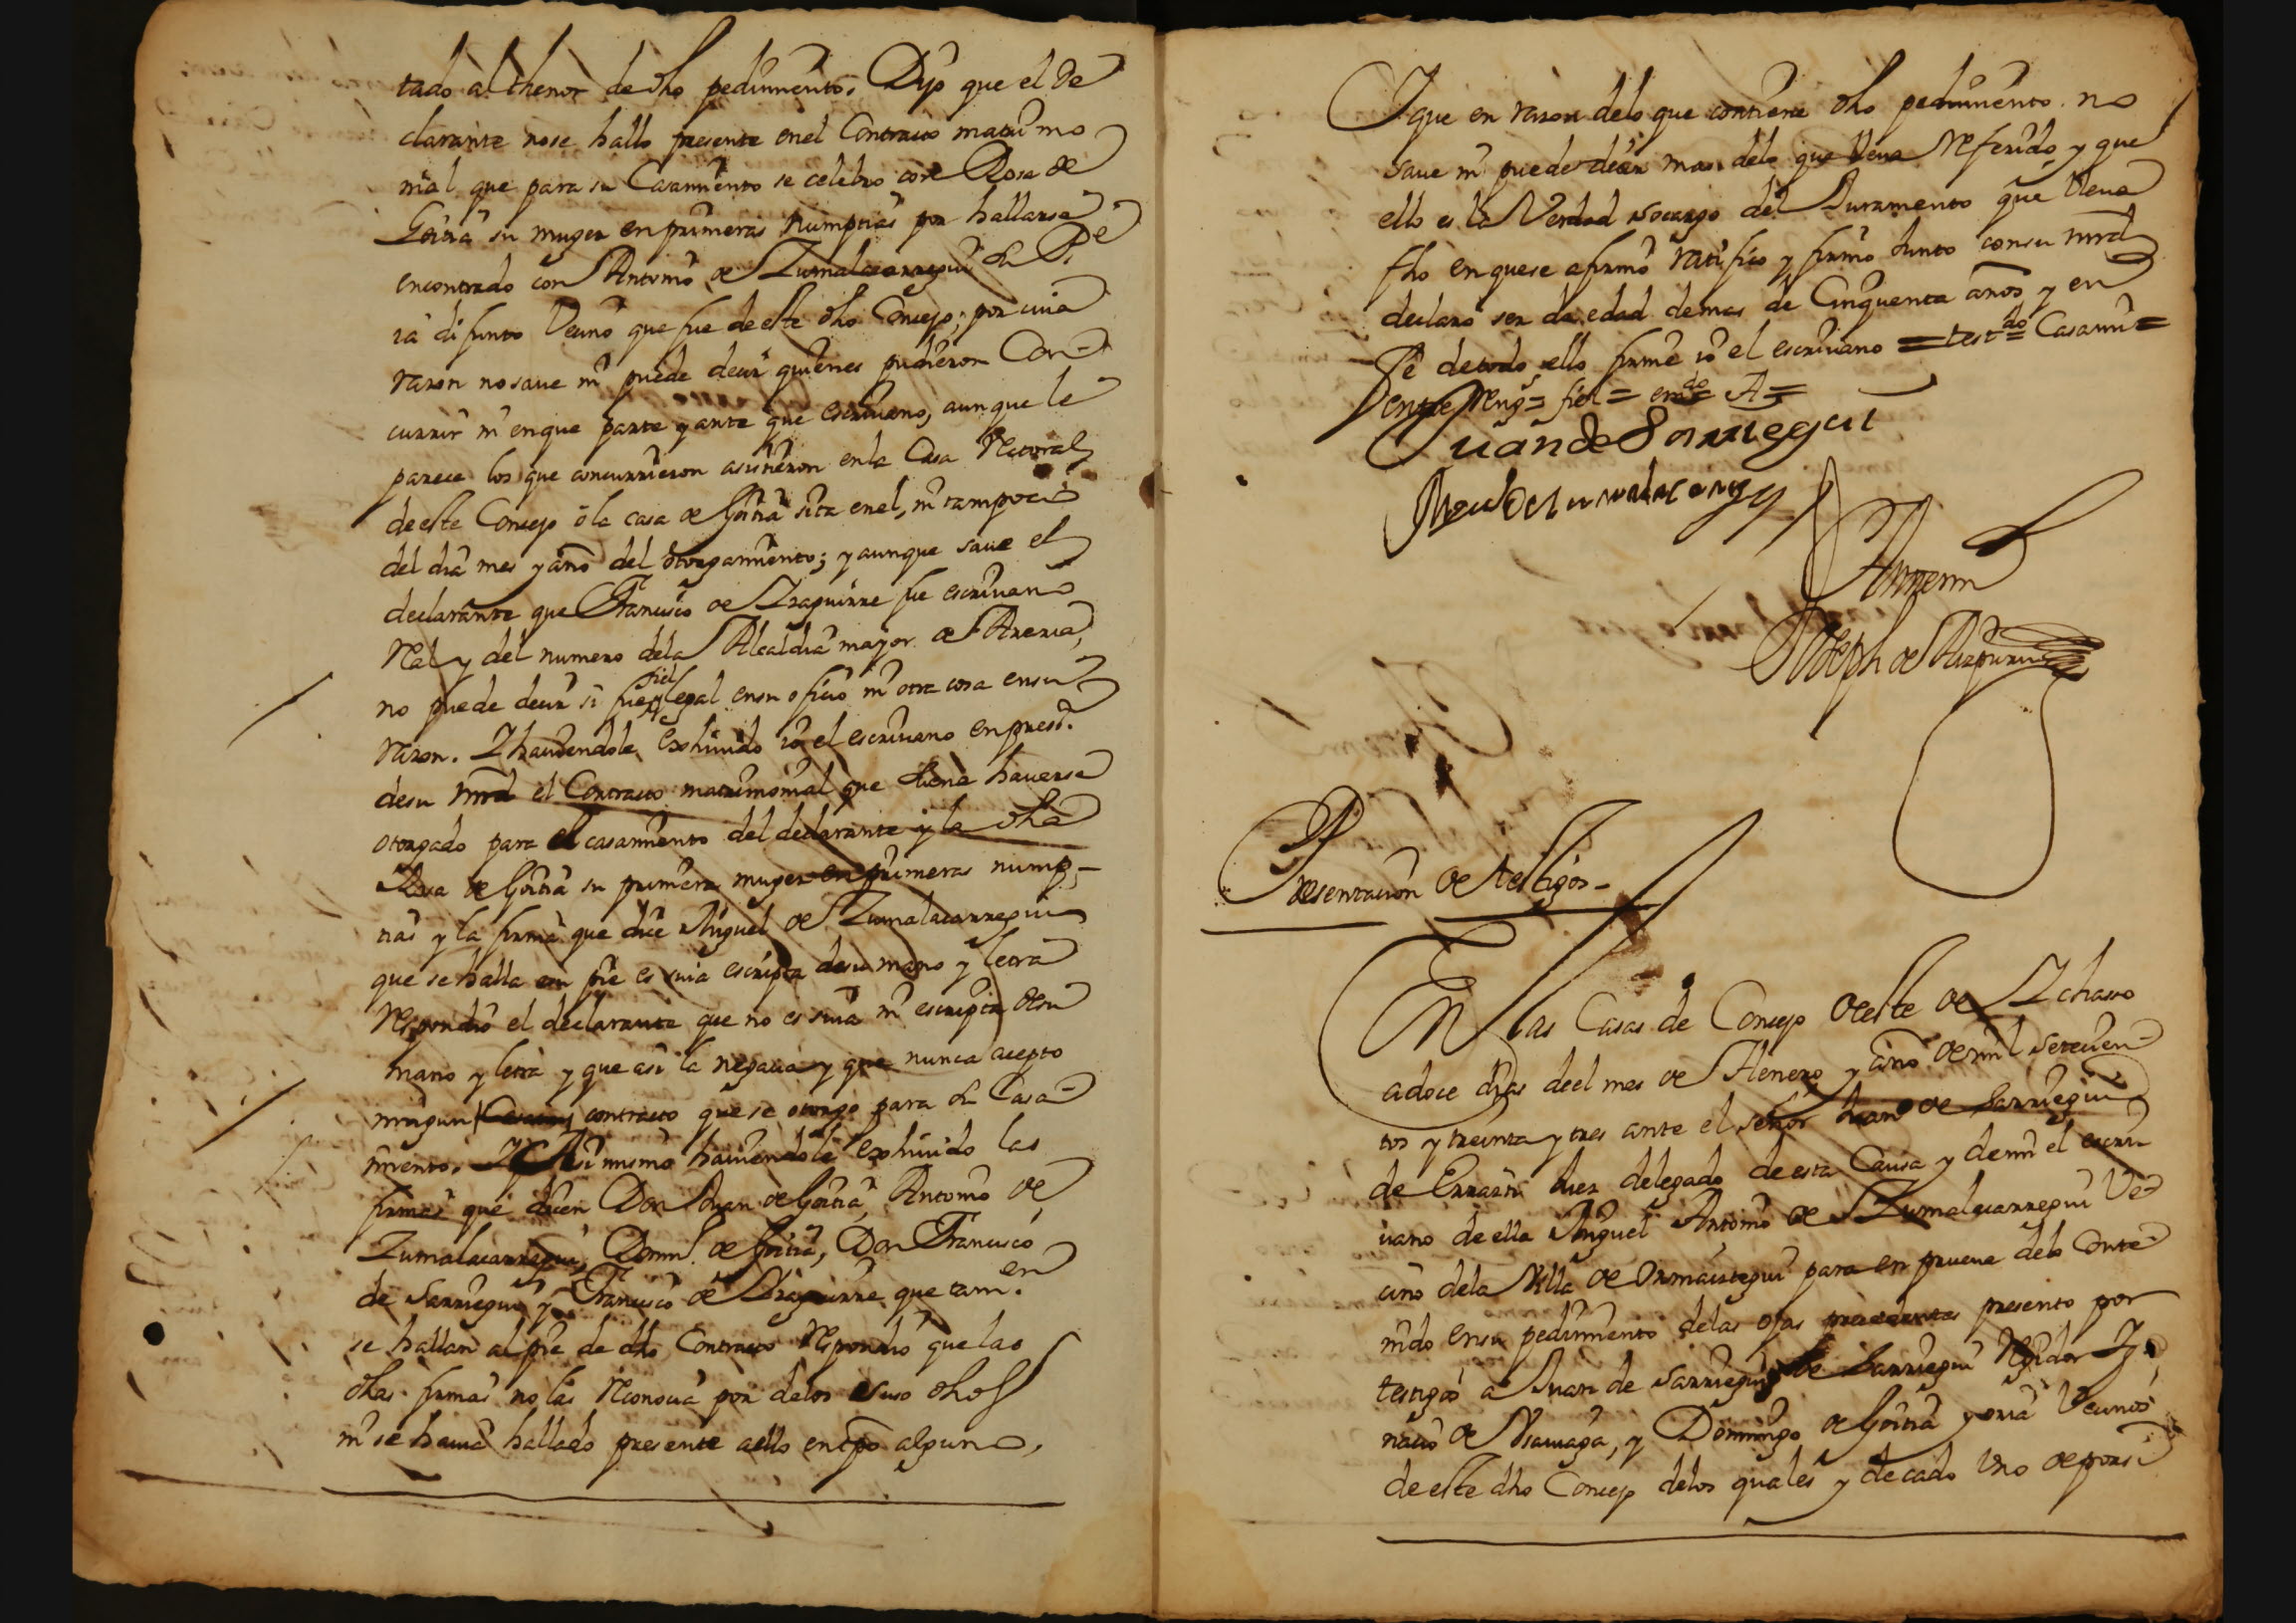 tado al thenor de dho pedimiento. Dijo que el de
clarante nose hallo presente enel Contracto matrimo
nial que para su Casamiento se celebro con Rosa de
Goitia su muger en primeras numptias por hallarse
encontrado con Antonio de Zumalacarregui su P.e
ia difunto Vecino que fue de este dho Concejo; por cuia
razon nosave ni puede decir quienes pudieron Con
currir ni enque parte y ante que escrivano, aunque le
parece los que concurrieron asistieron enla Casa Rectoral
de este Concejo ô la casa de Goitia sita enel, ni tampoco
del dia mes y año del otorgamiento; y aunque save el
declarante que Francisco de Yraguirre fue escrivano
Real y del numero dela Alcaldia mayor de Areria,
fiel
no puede decir si fue y legal ensu oficio ni otra cosa ensu
razon. Y haviendole Exhivido io el escrivano enpres.a
desu mrd el Contracto matrimonial que suena haverse
otorgado para el casamiento del declarante y la dha
Rosa de Goitia su primera muger en primeras nump-
tias y la firma que dice Miguel de Zumalacarregui
que se halla en pie es suia escripta desu mano y letra
Respondio el declarante que no es suia ni escripta desu
mano y letra y que asi la negava y que nunca acepto
ningun contracto que se otorgo para su Casa
miento. Y Asi mismo haviendole Exhivido las
firmas que dicen Don Juan de Goitia, Antonio de
Zumalacarregui, Domin. de Goitia, Don Francisco
de Sarriegui y Francisco de Yraguirre que tam.en
se hallan al pie de dho Contracto Respondio que las
dhas firmas no las Reconocia por delos suso dhos
ni se havia hallado presente aello entpo alguno,
Y que en razon delo que contiene dho pedimiento no
save ni puede decir mas delo que lleva Referido y que
ello es la Verdad socargo del Juramento que lleva
fho en quese afirmo ratifico y firmo Junto consu mrd
declaro ser de edad demas de Cinquenta años y en
Fe de todo ello firme io el escrivano = test.do = Casami =
entre reng.s = fiel = em.do = A =
Juan de Sarriegui
Miguel de Zumalacarregui
Antemi
Joseph de Aizpuru
Presentacion de testigos -
En las Casas de Concejo deeste de Ychaso
adoce dias deel mes de Henero y año de mil Setecien
tos y treinta y tres ante el señor Juan de Sarriegui
de Errarti Juez delegado de esta Causa y demi el escri
vano de ella Miguel Antonio de Zumalacarregui Ve
cino dela Villa de Ormaiztegui para en prueva delo Conte
nido ensu pedimiento delas ojas precedentes presento por
testigos a Juan de Sarriegui de Sarriegui Regidor Yg
nacio de Usavaga, y Domingo de Goitia y oria Vecinos
de este dho Concejo delos quales y de cado Uno de porsi